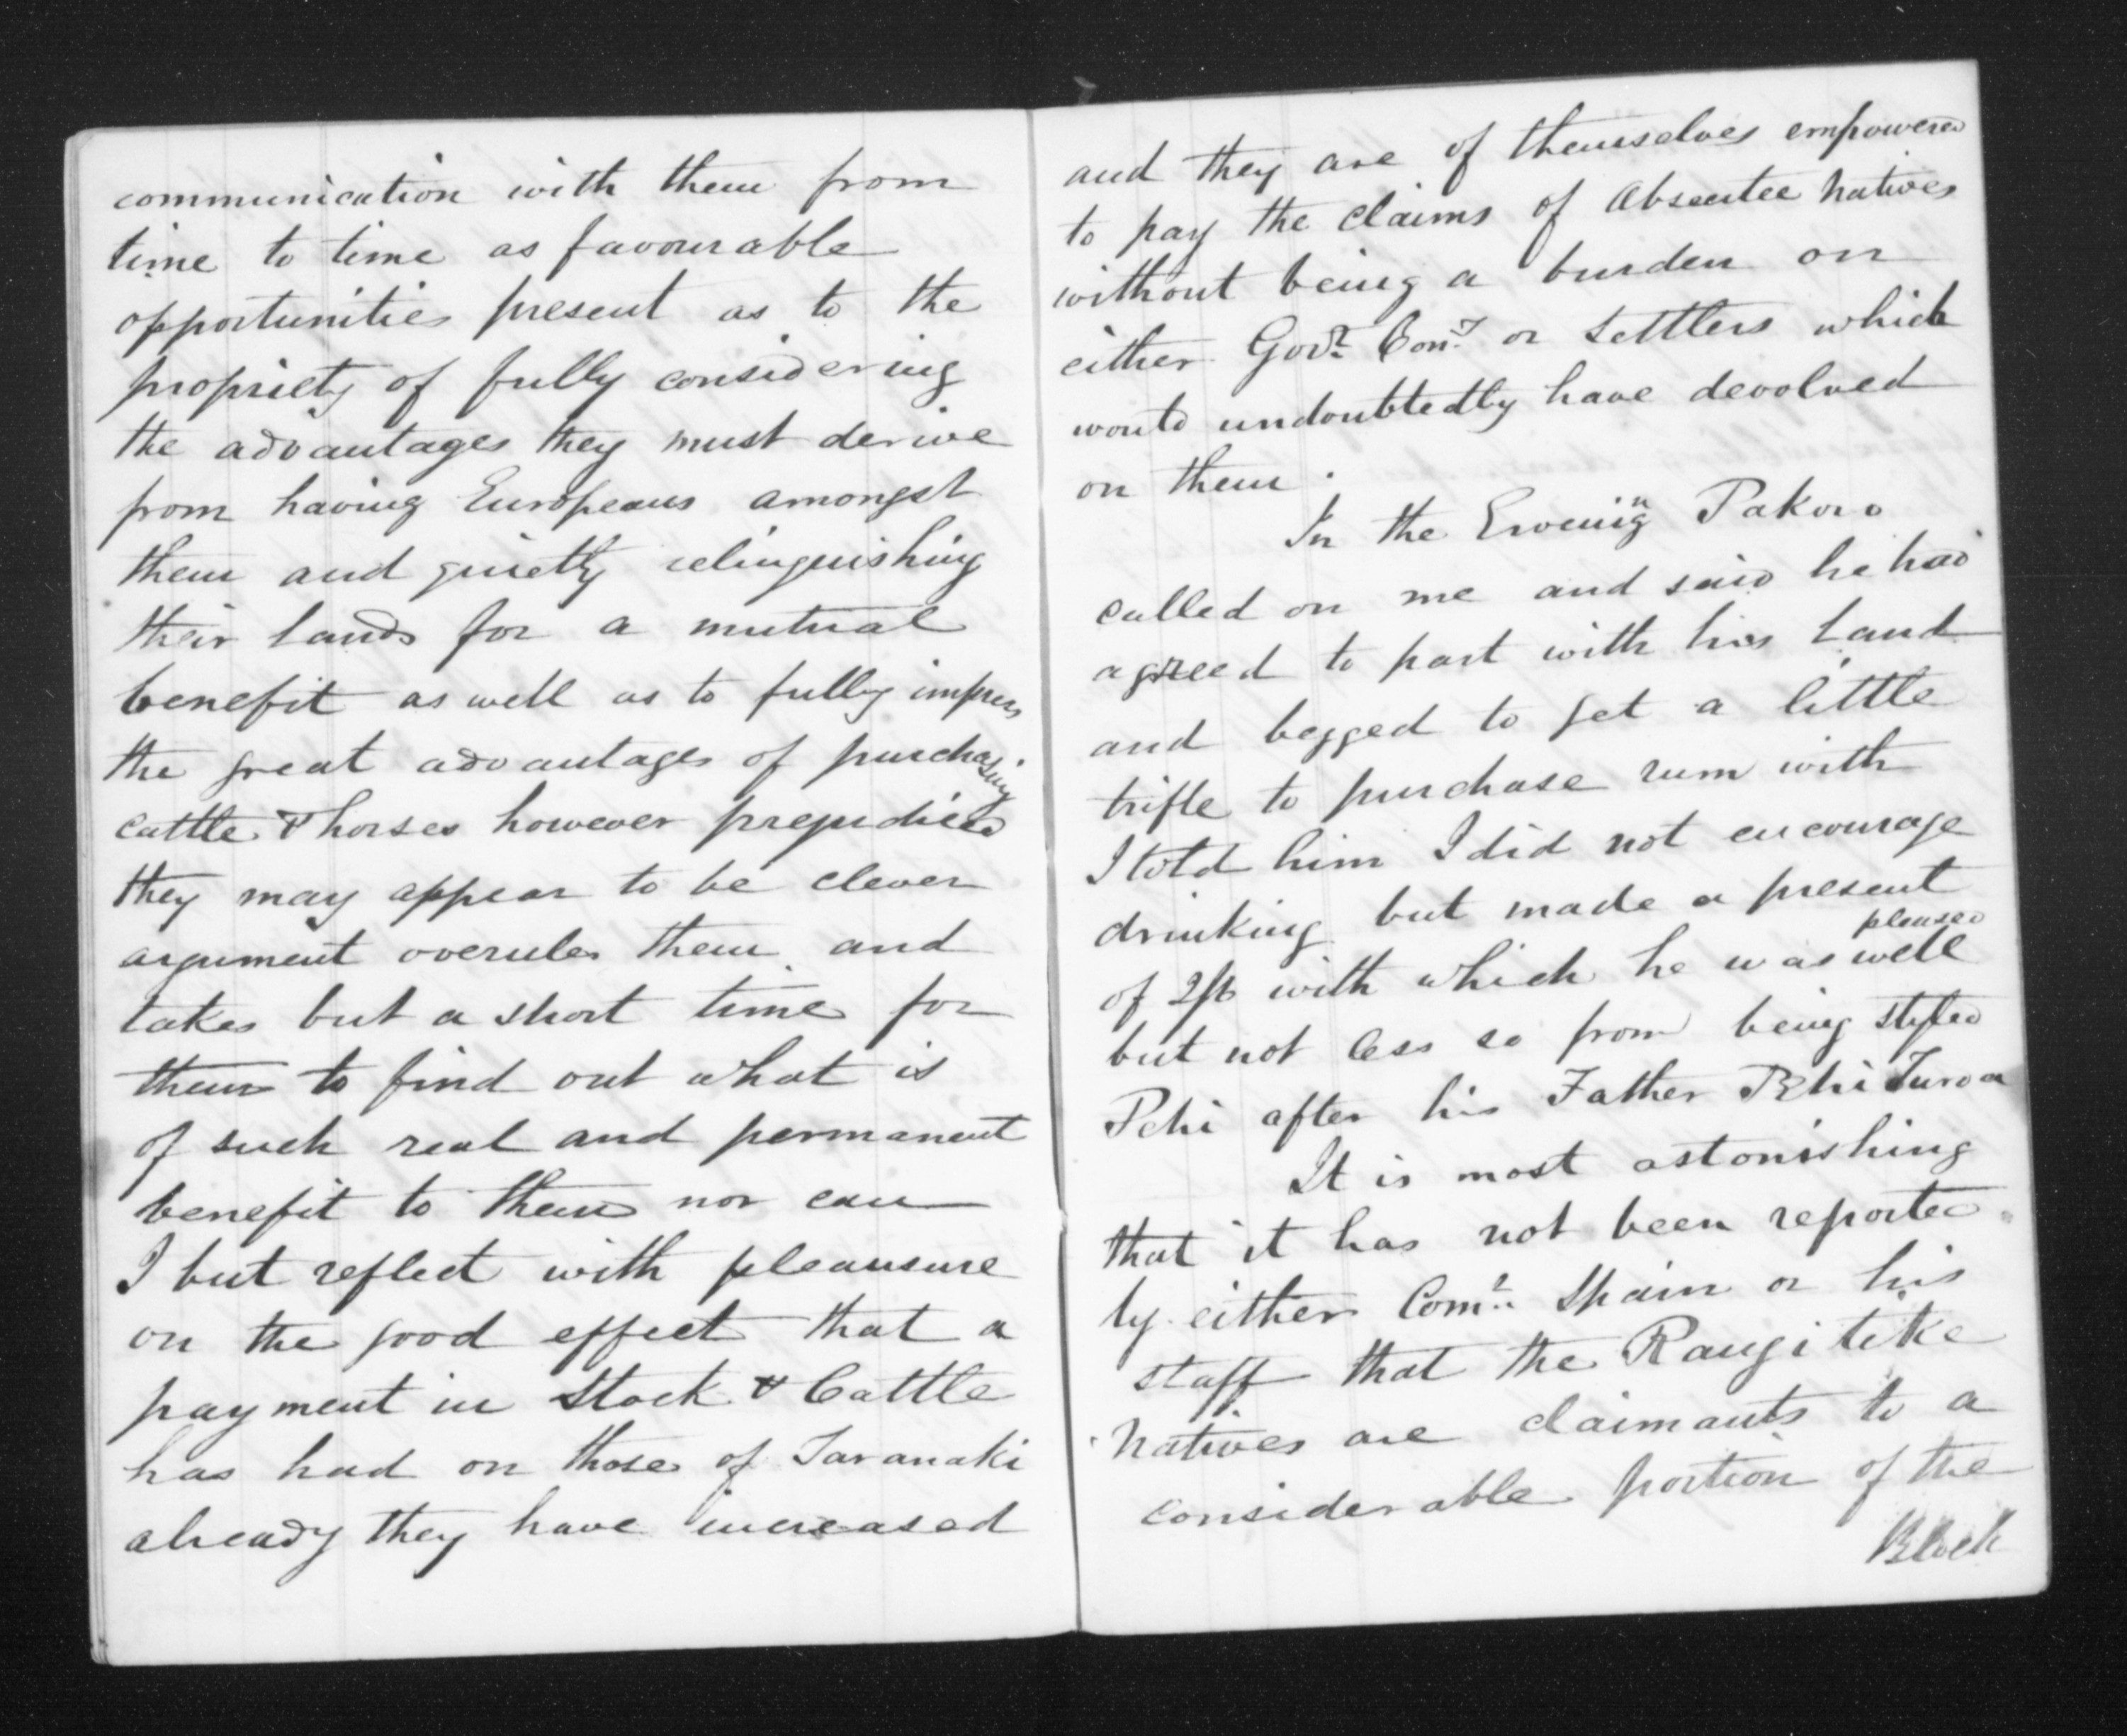 communication with them from
time to time as favourable
opportunities present as to the
propriety of fully considering
the advantages they must derive
from having Europeans amongst
them and quietly relinquishing
their lands for a mutual
benefit as well as to fully impress
the great advantages of purchasing
cattle & horses however prejudiced
they may appear to be clever
argument overules them and
takes but a short time for
them to find out what is
of such real and permanent
benefit to them nor can
I but reflect with pleausure
on the good effect that a
payment in Stock & Cattle
has had on those of Taranaki
already they have increased
and they are of themselves empowered
to pay the claims of Absentee Natives
without being a burden on
either Govt. Cony. or Settlers which
would undoubtedly have devolved
on them.
In the Evening Pakoro
called on me and said he had
agreed to part with his Land
and begged to get a little
trifle to purchase rum with
I told him I did not encourage
drinking but made a present
of 2/6 with which he was well pleased
but not less so from being styled
Pehi after his Father Pehi Turoa
It is most astonishing
that it has not been reported
by either Comr. Spain or his
staff that the Rangitike
Natives are claimants to a
considerable portion of the
Block